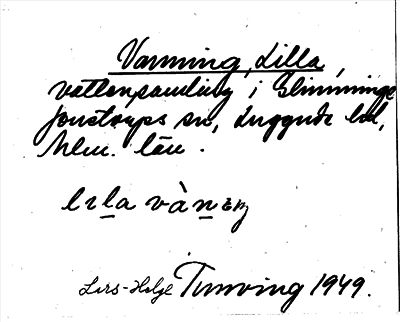 Varming, Lilla,
vattensamling i Glimminge
Jonstorps sn, Luggude hd,
Mlm. län.
lɩla vànɩŋ
Lars-Helge Tunving 1949.